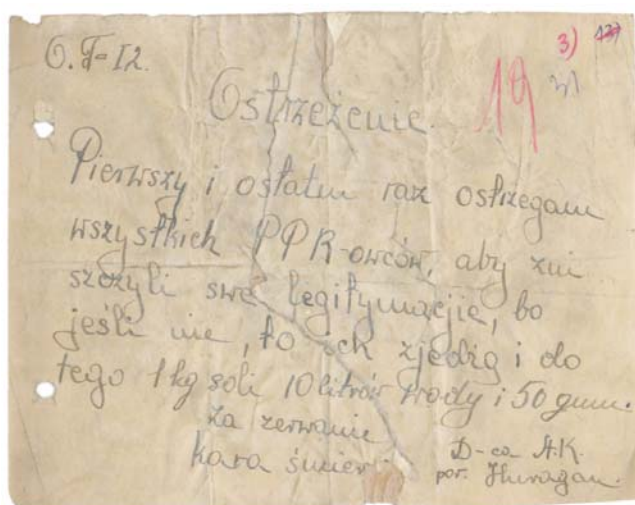 O.T-12.
3)
19
Ostrzeżenie.
Pierwszy i ostatni raz ostrzegam
wszystkich PPR-owców, aby zni
szczyli swe legitymacjie, bo
jeśli nie, to ich zjedzą i do
tego 1 kg soli 10 litrów wody i 50 gum.
Za zerwanie
kara śmierć
D-ca A.K.
por. Huragan.